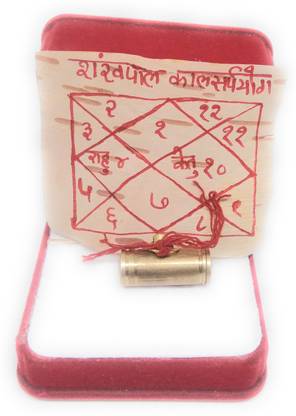 शंखपाल कालसर्पयोग
२ १२
३ १ ११
राहु ४ केतु १०
५ ७ ९
६ ८